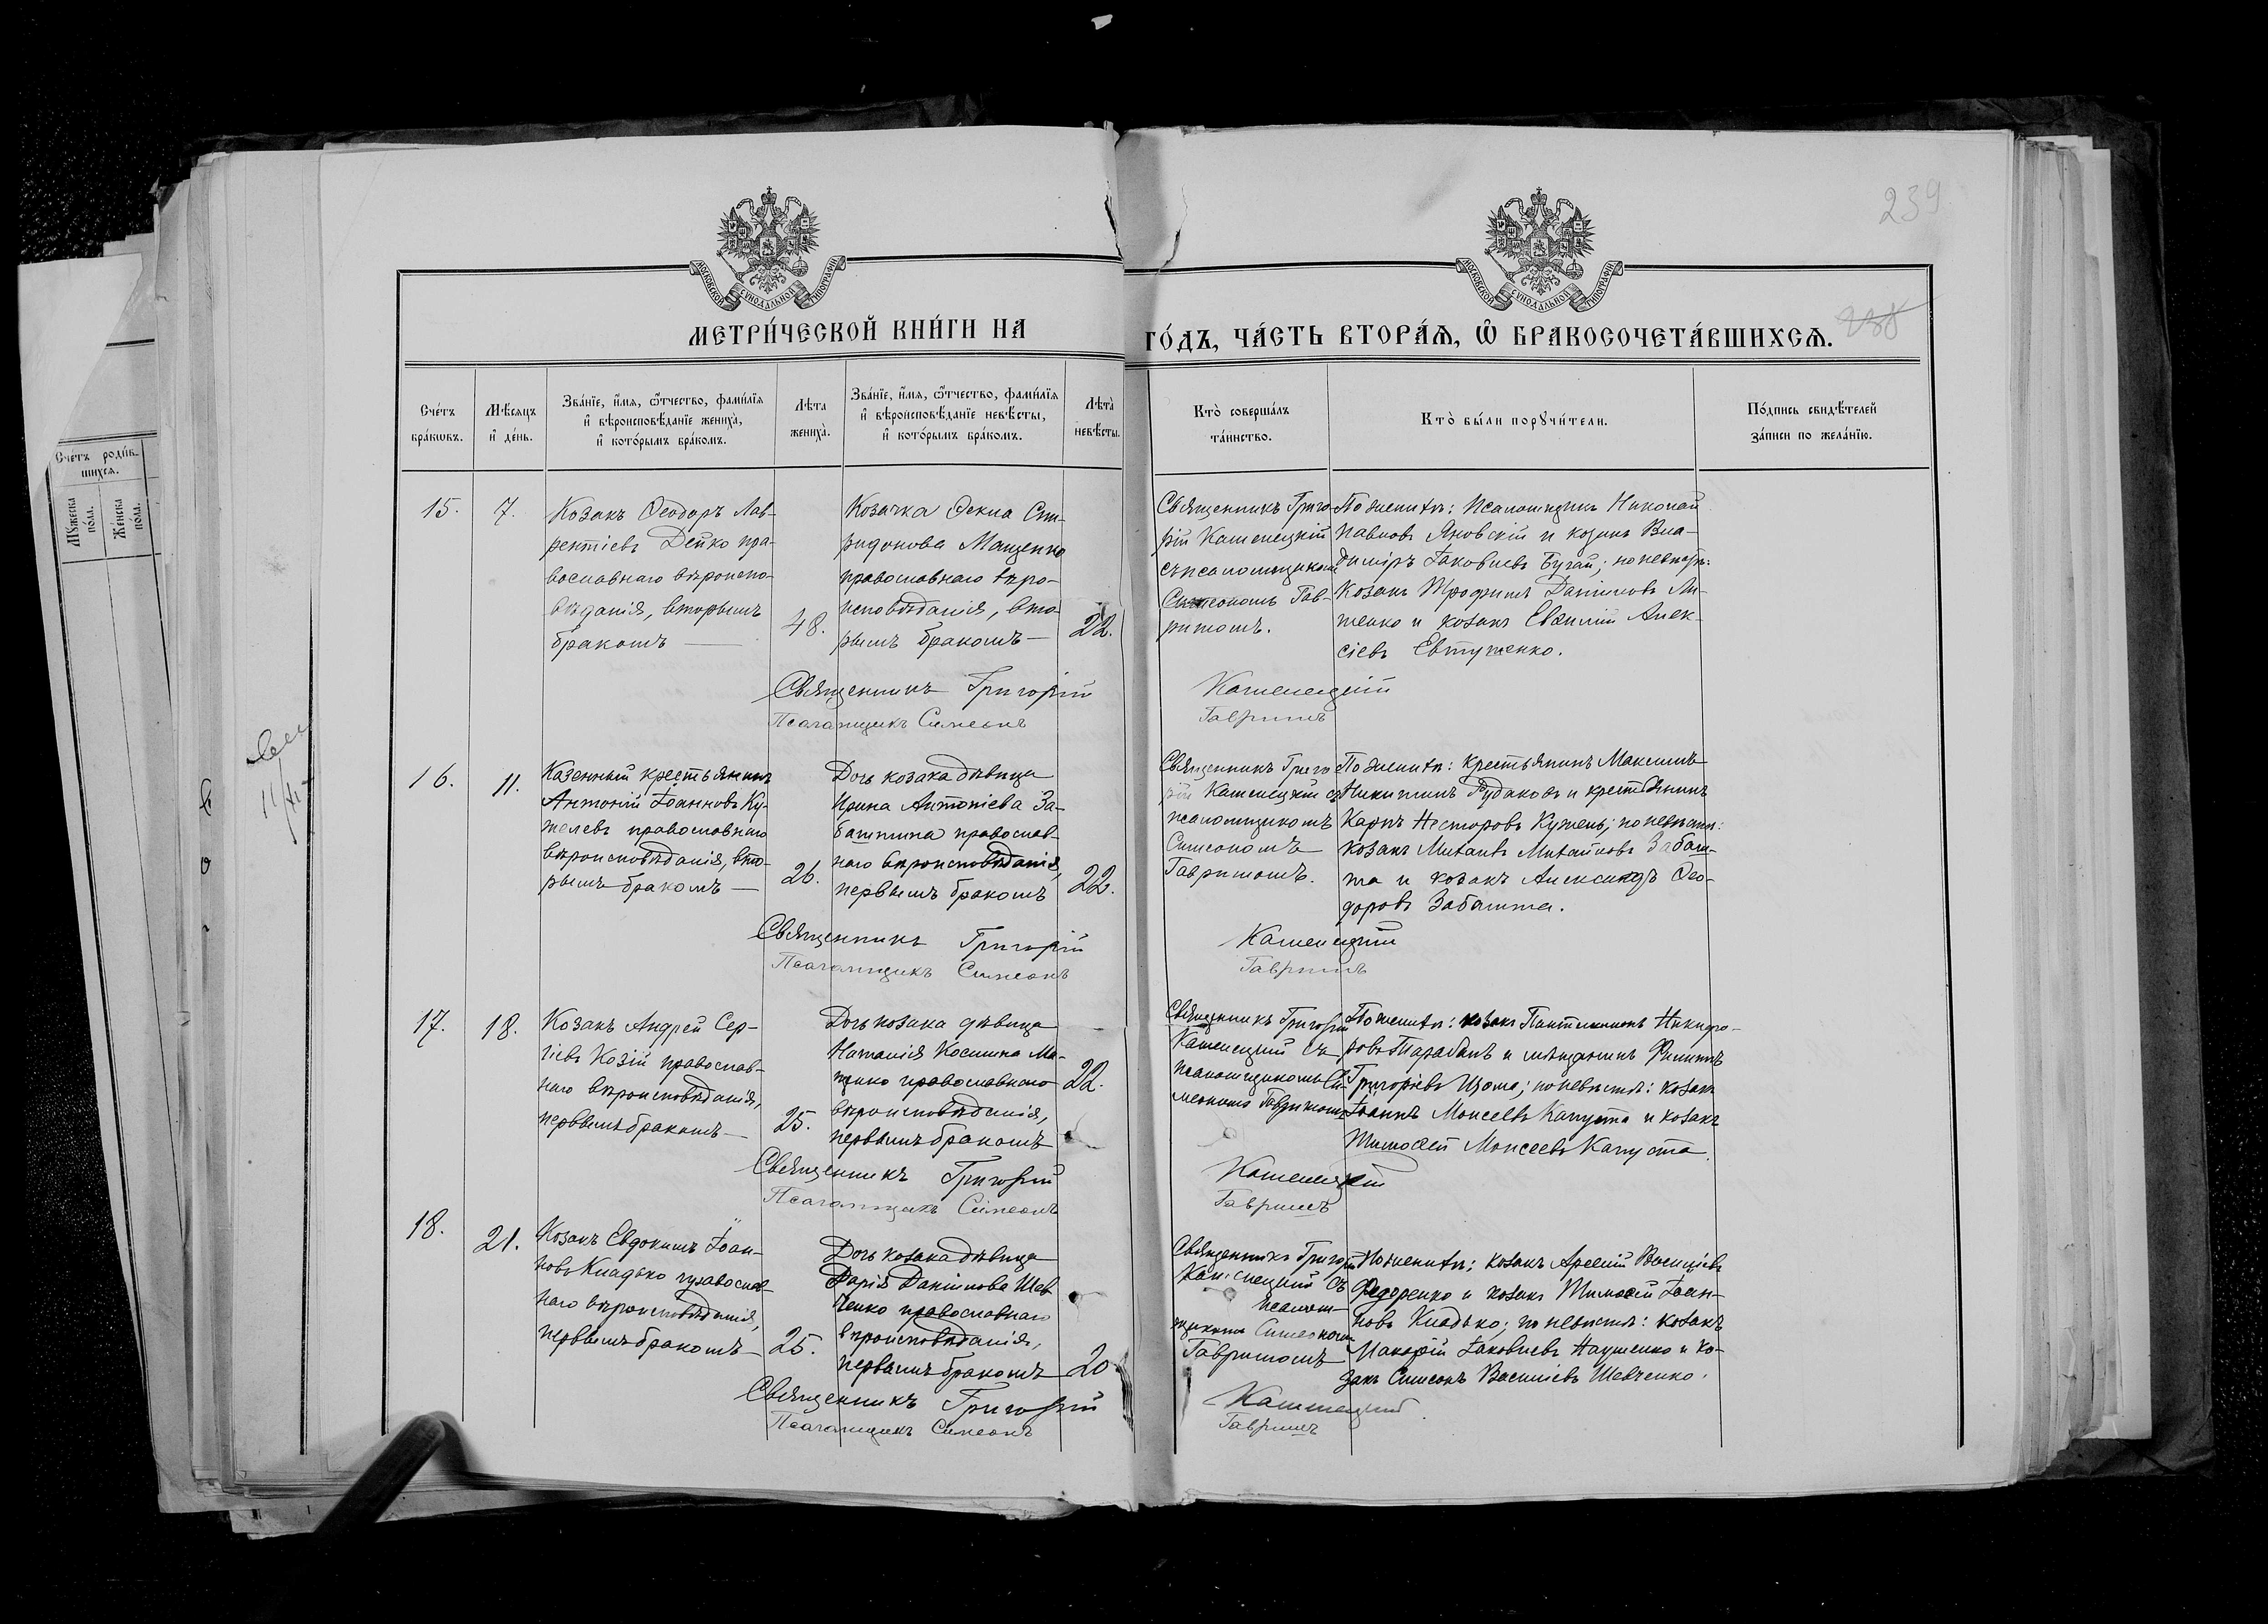 239
МОСКОВСКОЙ СѴНОДАЛЬНОЙ ТИПОГРАФІИ
МОСКОВСКОЙ СѴНОДАЛЬНОЙ ТИПОГРАФІИ
МЕТРИ́ЧЕСКОЙ КНИ́ГИ НА
ГО́ДЪ, ЧА́СТЬ ВТОРА́Ѧ, Ѽ БРАКОСОЧЕТА́ВШИХСѦ.
238
Сче́тъ
бра́кωвъ.
Мѣ́сяцъ
и҆ де́нь.
Зва́нїе, и҆́мѧ, ѻ҆́тчество, фами́лїѧ
и҆ вѣроисповѣ́данїе жениха̀,
и҆ кото́рымъ бра́комъ.
Лѣ́та
жениха̀.
Зва́нїе, и҆́мѧ, ѻ҆́тчество, фами́лїѧ
и҆ вѣроисповѣ́данїе невѣ́сты,
и҆ кото́рымъ бра́комъ.
Лѣта̀
невѣ́сты.
Кто̀ соверша́лъ
та́инство.
Кто̀ бы́ли порꙋчи́тели.
По́дпись свидѣ́телей
за́писи по жела́нїю.
Сче́тъ роди́в-
шихсѧ.
Мꙋ́жеска
по́ла.
Же́нска
по́ла.
15.
7.
Козакъ Ѳеодоръ Лав-
рентіевъ Дейко пра-
вославнаго вѣроиспо-
вѣданія, вторымъ
бракомъ —
48.
Козачка Ѳекла Спи-
ридонова Мащенко
православнаго вѣро-
исповѣданія, вто-
рымъ бракомъ —
22.
Священникъ Григо-
рій Каменецкій
съ псаломщикомъ
Симеономъ Гав-
ришомъ.
По женихѣ: псаломщикъ Николай
Павловъ Яновскій и козакъ Вла-
диміръ Іаковлевъ Бугай; по невѣстѣ:
козакъ Трофимъ Даниловъ Ли-
тенко и козакъ Евѳимій Алек-
сіевъ Евтушенко.
Священникъ Григорій Каменецкій
Псаломщикъ Симеонъ Гавришъ
16.
11.
Казенный крестьянинъ
Антоній Іоанновъ Ку-
желевъ православнаго
вѣроисповѣданія, вто-
рымъ бракомъ —
26.
Дочь козака дѣвица
Ирина Антоніева За-
баштина православ-
наго вѣроисповѣданія,
первымъ бракомъ
22.
Священникъ Григо
рій Каменецкій съ
псаломщикомъ
Симеономъ
Гавришомъ.
По женихѣ: крестьянинъ Максимъ
Никитинъ Рудаковъ и крестьянинъ
Карпъ Несторовъ Кужель; по невѣстѣ:
козакъ Михаилъ Михайловъ Забаш-
та и козакъ Александръ Ѳео-
доровъ Забашта.
Священникъ Григорій Каменецкій
Псаломщикъ Симеонъ Гавришъ
17.
18.
Козакъ Андрей Сер-
гіевъ Козій православ-
наго вѣроисповѣданія,
первымъ бракомъ —
25.
Дочь козака дѣвица
Наталія Космина Ма-
щенко православнаго
вѣроисповѣданія,
первымъ бракомъ
22.
Священникъ Григорій
Каменецкій съ
псаломщикомъ Си-
меономъ Гавришомъ
По женихѣ: козакъ Пантелимонъ Никифо-
ровъ Тарабанъ и мѣщанинъ Филиппъ
Григоріевъ Щома; по невѣстѣ: козакъ
Іоаннъ Моисеевъ Капуста и козакъ
Тимоѳей Моисеевъ Капуста.
Священникъ Григорій Каменецкій
Псаломщикъ Симеонъ Гавришъ
18.
21.
Козакъ Евдокимъ Іоан-
новъ Кладько православ-
наго вѣроисповѣданія,
первымъ бракомъ —
25.
Дочь козака дѣвица
Дарія Даниілова Шев-
ченко православнаго
вѣроисповѣданія,
первымъ бракомъ
20
Священникъ Григорій
Каменецкій съ
псалом-
щикомъ Симеономъ
Гавришомъ
По женихѣ: козакъ Арсеній Василіевъ
Федоренко и козакъ Тимоѳей Іоан-
новъ Кладько; по невѣстѣ: козакъ
Макарій Іаковлевъ Науменко и ко-
закъ Симеонъ Василіевъ Шевченко.
Священникъ Григорій Каменецкій
Псаломщикъ Симеонъ Гавришъ